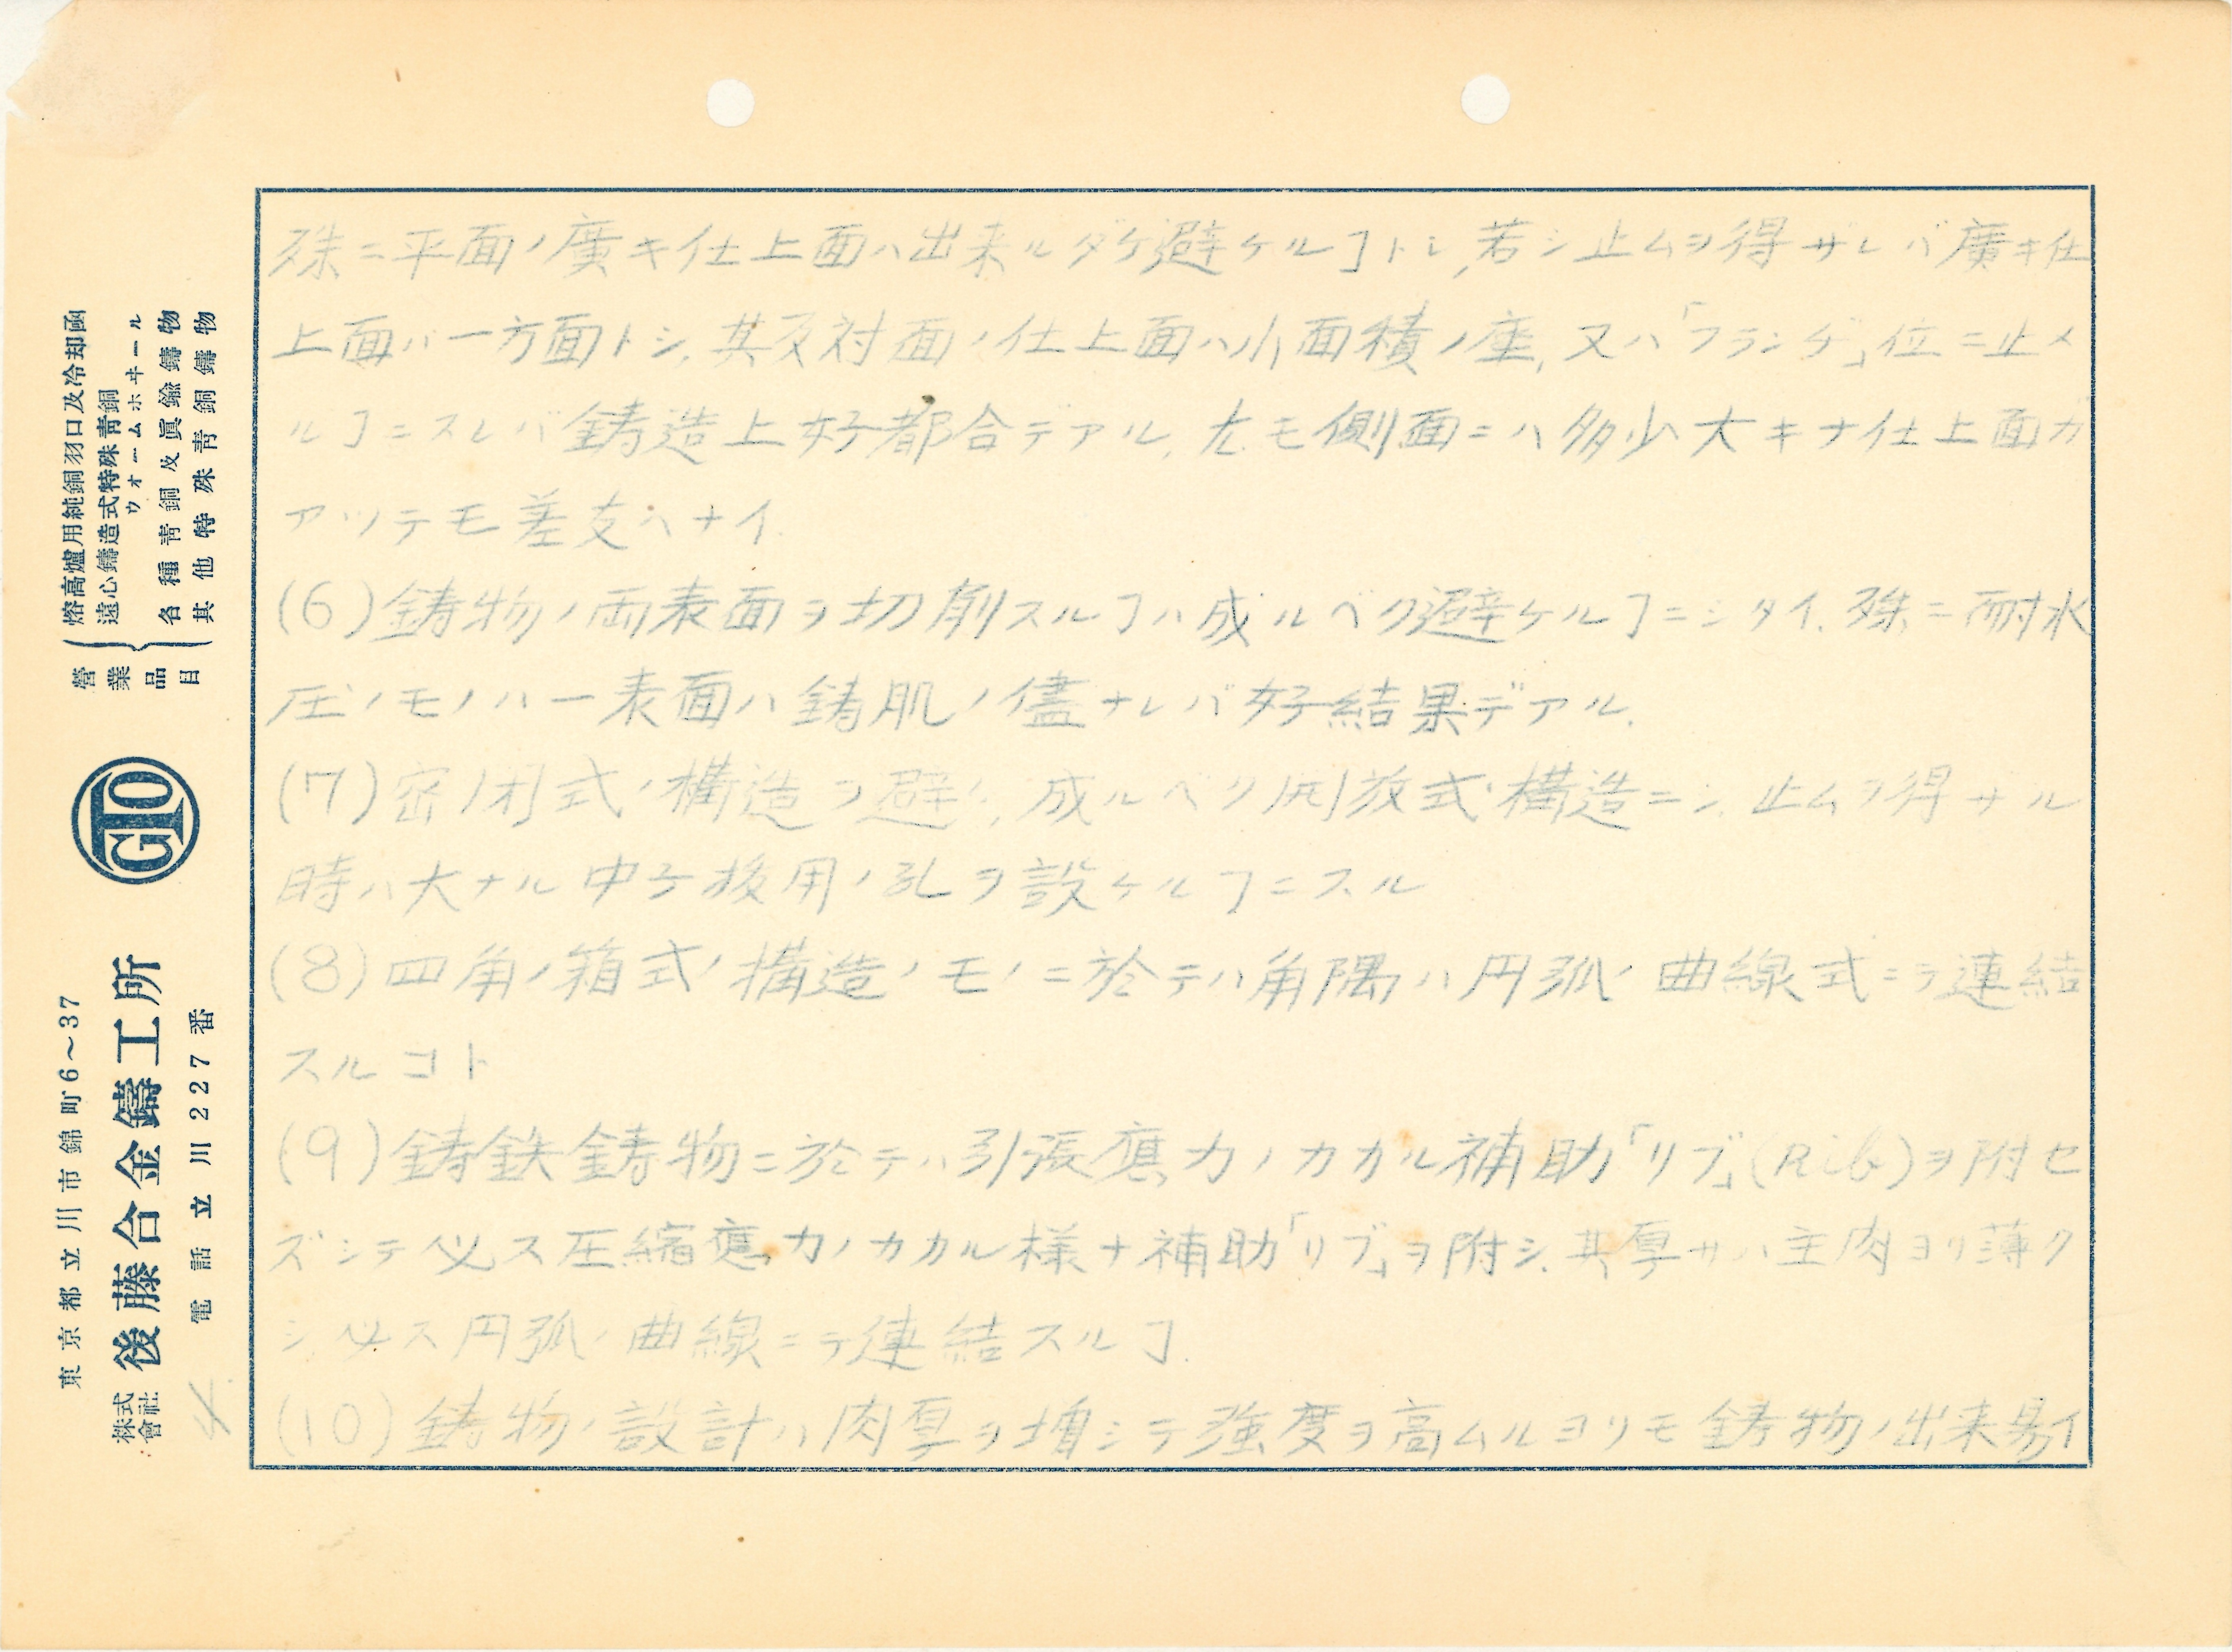 殊ニ平面ノ廣キ仕上面ハ出来ルダケ避ケルヿトシ,若シ止ムヲ得ザレバ廣キ仕
上面バ一方面トシ,其反対面ノ仕上面ハ小面積ノ座,又ハ「フランヂ」位ニ止メ
ルヿニスレバ鋳造上好都合デアル,尤モ側面ニハ多少大キナ仕上面ガ
アツテモ差支ヘナイ.
(6)鋳物ノ両表面ヲ切削スルヿハ成ルベク避ケルヿニシタイ.殊ニ耐水
圧ノモノハ一表面ハ鋳肌ノ儘ナレバ好結果デアル.
(7)密閉式ノ構造ヲ避ケ,成ルベク開放式ノ構造ニシ.止ムヲ得サル
時ハ大ナル中子抜用ノ孔ヲ設ケルヿニスル
(8)四角ノ箱式ノ構造ノモノニ於テハ角隅ハ円弧ノ曲線式ニテ連結
スルコト
(9)鋳鉄鋳物ニ於テハ引張應力ノカカル補助「リブ」(Rib)ヲ附セ
ズシテ必ス圧縮應力ノカカル様ナ補助「リブ」ヲ附シ.其厚サハ主肉ヨリ薄ク
シ必ス円弧ノ曲線ニテ連結スルヿ.
(10)鋳物ノ設計ハ肉厚ヲ増シテ強度ヲ高ムルヨリモ鋳物ノ出来易イ
營業品目
熔高爐用純銅羽口及冷却函
遠心鑄造式特殊靑銅
ウオームホヰール
各種靑銅及眞鍮鑄物
其他特殊靑銅鑄物
GTO
東京都立川市錦町6～37
株式會社 後藤合金鑄工所
電話 立川227番
4